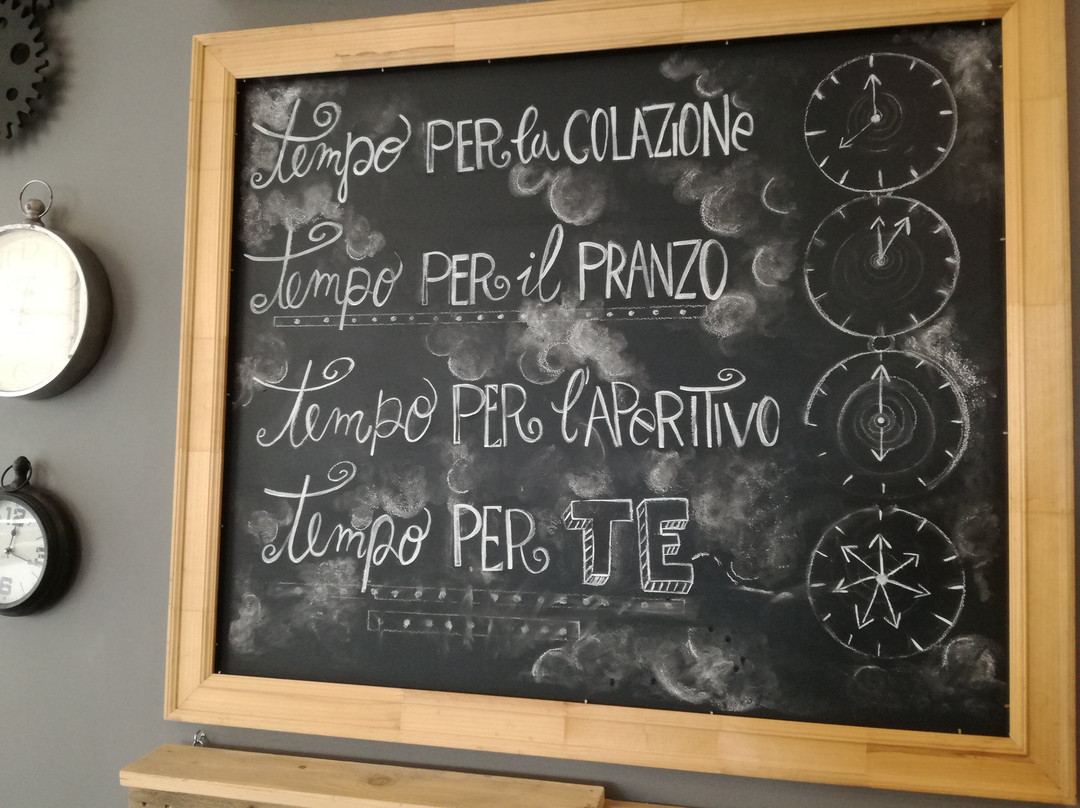 tempo PER la COLAZIONe
tempo PER il PRANZO
tempo PER l'APeRITIVO
tempo PER TE
12
6